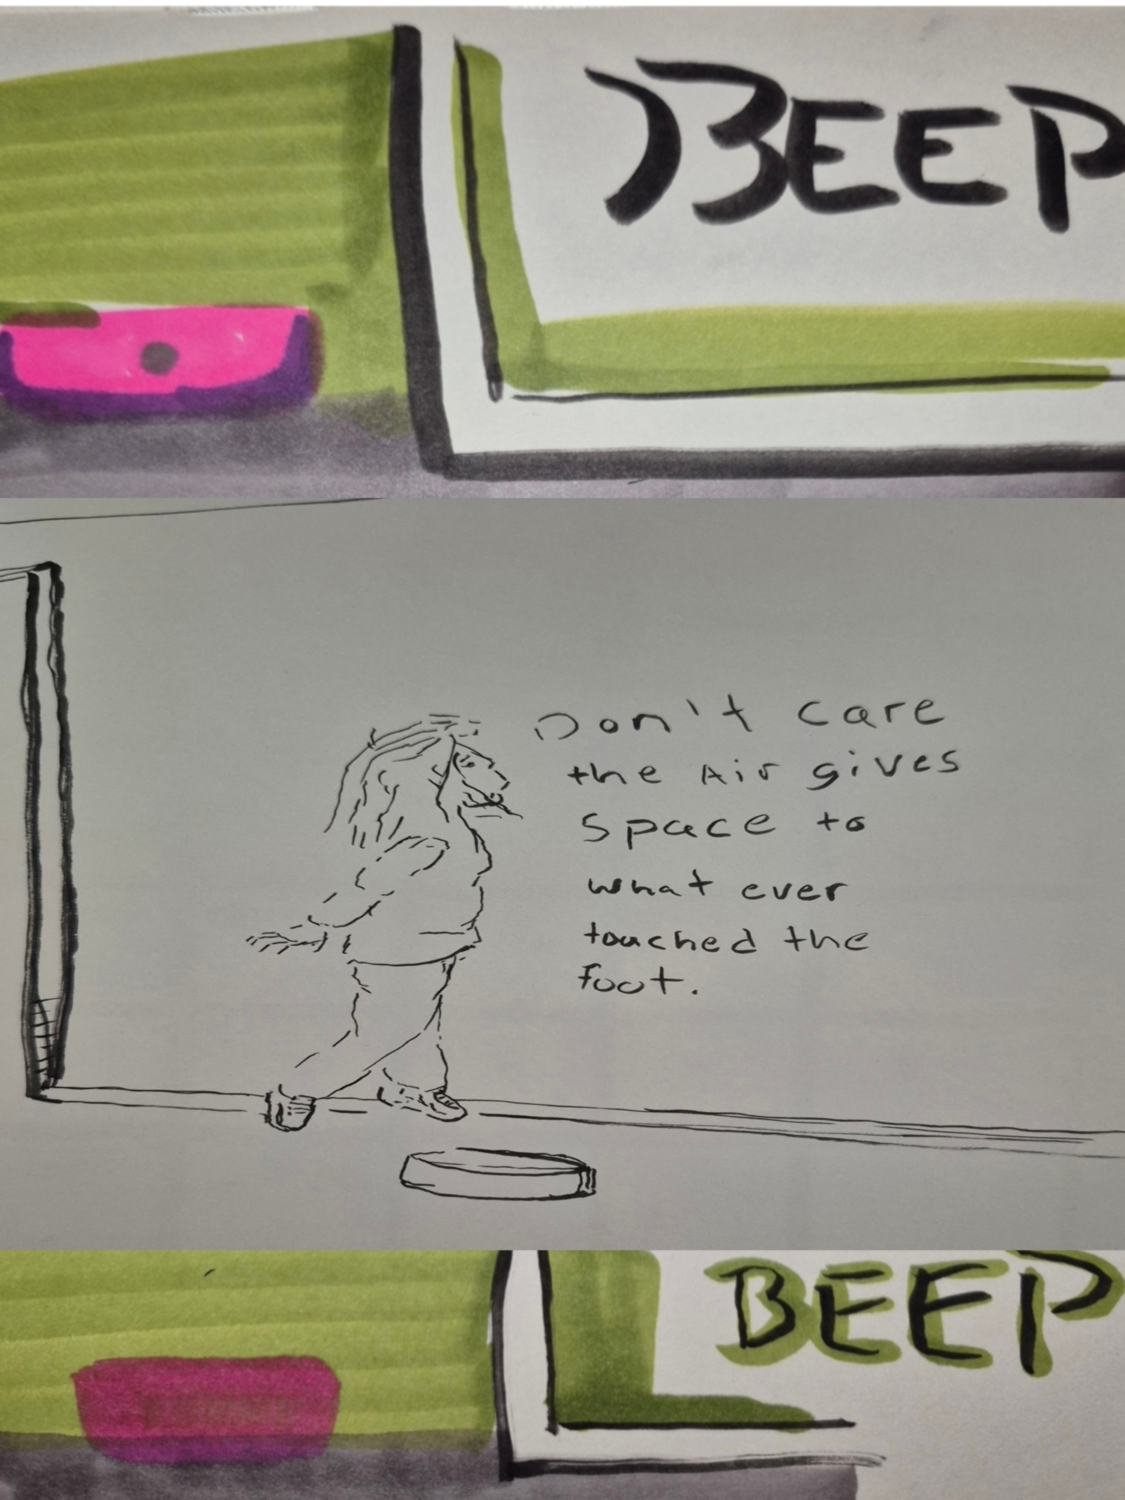 BEEP
Don't care
the Air gives
space to
what ever
touched the
foot.
BEEP